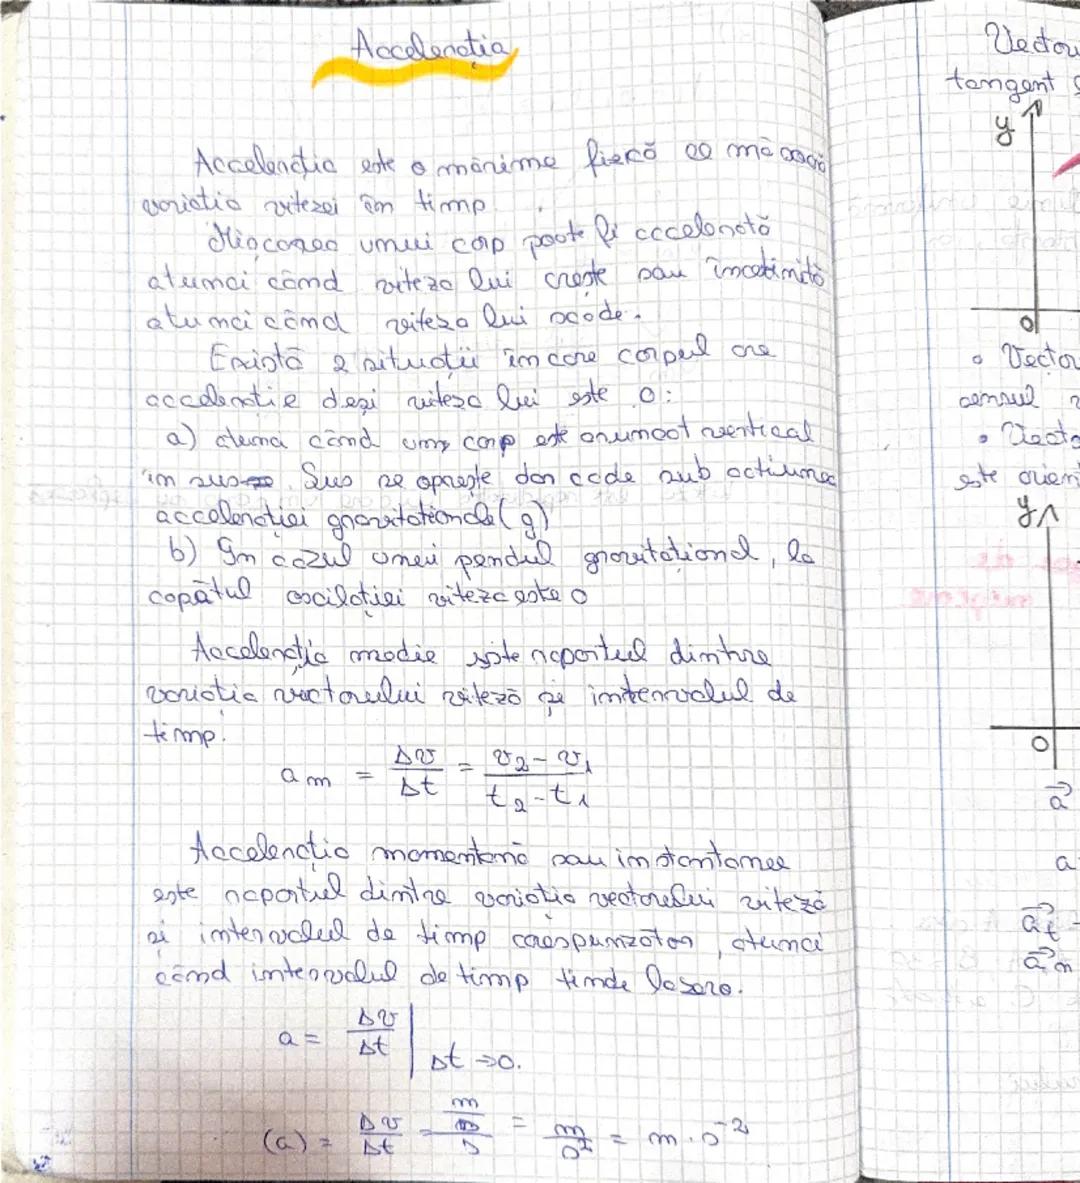 Accelerația
Accelerația este o mărime fizică ce măsoară
variatia vitezei în timp.
Mișcarea unui corp poate fi accelerată
atunci când viteza lui creste sau încetinită
atunci când viteza lui scade.
Există 2 situații în care corpul are
acceleratie deși viteza lui este 0:
a) atunci când un corp este aruncat vertical
în sus Sus se oprește dar cade sub actiunea
accelerației gravitationale (g)
b) În cazul unui pendul gravitațional, la
capătul oscilației viteza este 0
Accelerația medie este raportul dintre
variatia vectorului viteză și intervalul de
timp.
am = Δv/Δt = v2 - v1 / t2 - t1
Accelerația momentană sau instantanee
este raportul dintre variatia vectorului viteză
și intervalul de timp corespunzător, atunci
când intervalul de timp tinde la zero.
a = Δv/Δt | Δt→0.
(a) = Δv/Δt = m/s/s = m/s² = m·s⁻²
Vector
tangent
y
0
• Vector
sensul
• Vector
este orient
y
0
a⃗
a
a⃗t
a⃗n